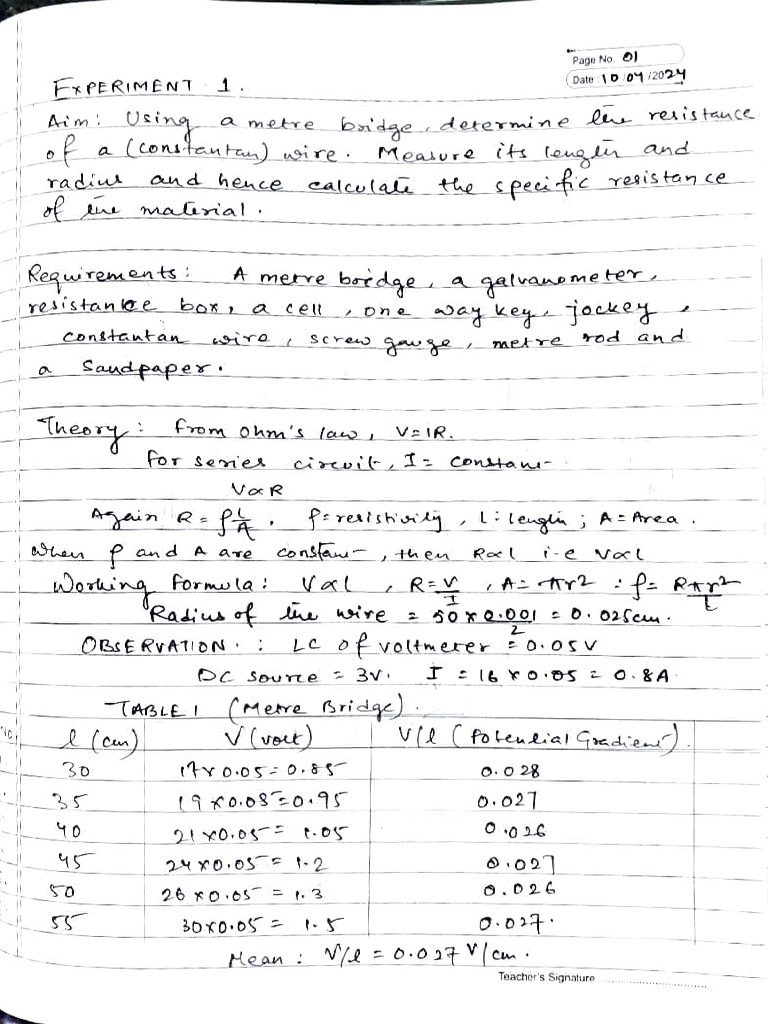 Page No. 01
Date: 10/04/2024
EXPERIMENT 1.
Aim: Using a metre bridge, determine the resistance
of a (constantan) wire. Measure its length and
radius and hence calculate the specific resistance
of the material.
Requirements: A metre bredge, a galvanometer,
resistance box, a cell, one way key, jockey,
constantan wire, screw gauge, metre rod and
a Sandpaper.
Theory: from ohm's law, V=IR.
for series circuit, I = constant
V∝R
Again R = ρ l/A. ρ=resistivity, l: length; A = Area.
When ρ and A are constant, then R∝l i-e V∝l
Working formula: V∝l, R = V/I, A = πr2 ∴ ρ = Rπr2/l
Radius of the wire = 50 x 0.001/2 = 0.025cm.
OBSERVATION: LC of voltmeter = 0.05V
DC source = 3V. I = 16 x 0.05 = 0.8A
TABLE 1 (Metre Bridge).
l (cm) V (volt) V/l (Potential Gradient)
30 17x0.05=0.85 0.028
35 19x0.05=0.95 0.027
40 21x0.05= 1.05 0.026
45 24x0.05= 1.2 0.027
50 26x0.05 = 1.3 0.026
55 30x0.05 = 1.5 0.027.
Mean: V/l = 0.027 V/cm.
Teacher's Signature